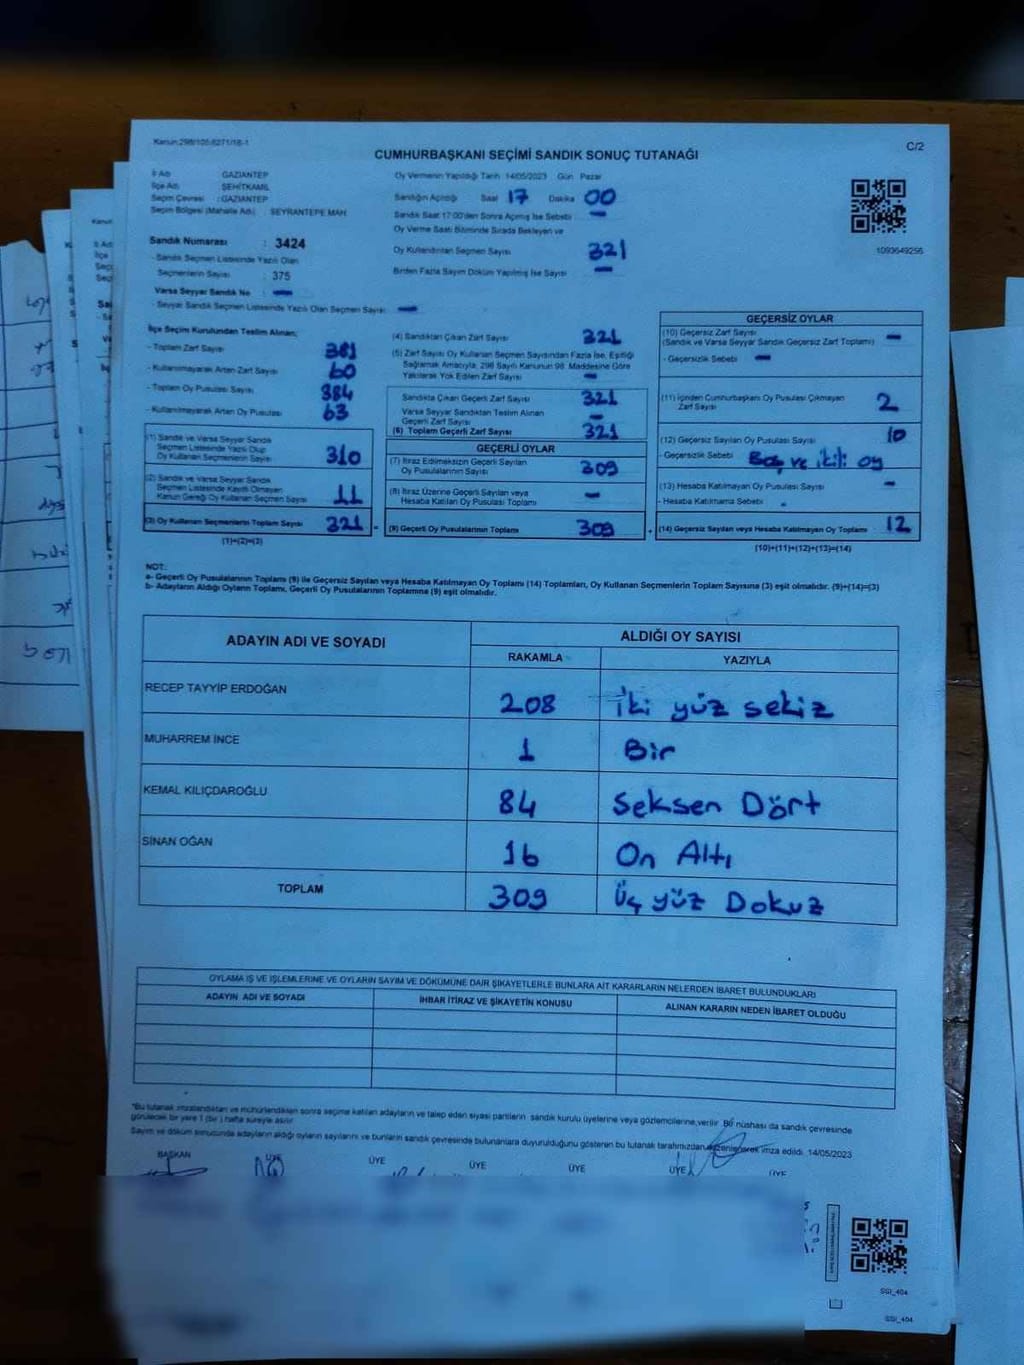 Kanun:298/105-6271/18-1
C/2
CUMHURBAŞKANI SEÇİMİ SANDIK SONUÇ TUTANAĞI
İl Adı GAZİANTEP
İlçe Adı ŞEHİTKAMİL
Seçim Çevresi : GAZİANTEP
Seçim Bölgesi (Mahalle Adı) SEYRANTEPE MAH.
Sandık Numarası : 3424
- Sandık Seçmen Listesinde Yazılı Olan
Seçmenlerin Sayısı : 375
Varsa Seyyar Sandık No : —
- Seyyar Sandık Seçmen Listesinde Yazılı Olan Seçmen Sayısı : —
Oy Vermenin Yapıldığı Tarih 14/05/2023 Gün Pazar
Sandığın Açıldığı Saat 17 Dakika 00
Sandık Saat 17:00'den Sonra Açılmış İse Sebebi —
Oy Verme Saati Bitiminde Sırada Bekleyen ve
Oy Kullandırılan Seçmen Sayısı 321
Birden Fazla Sayım Döküm Yapılmış İse Sayısı —
1093649256
İlçe Seçim Kurulundan Teslim Alınan;
- Toplam Zarf Sayısı 381
- Kullanılmayarak Artan Zarf Sayısı 60
- Toplam Oy Pusulası Sayısı 384
- Kullanılmayarak Artan Oy Pusulası 63
(1) Sandık ve Varsa Seyyar Sandık
Seçmen Listesinde Yazılı Olup
Oy Kullanan Seçmenlerin Sayısı 310
(2) Sandık ve Varsa Seyyar Sandık
Seçmen Listesinde Kayıtlı Olmayan
Kanun Gereği Oy Kullanan Seçmen Sayısı 11
(3) Oy Kullanan Seçmenlerin Toplam Sayısı 321 =
(1)+(2)=(3)
(4) Sandıktan Çıkan Zarf Sayısı 321
(5) Zarf Sayısı Oy Kullanan Seçmen Sayısından Fazla İse, Eşitliği
Sağlamak Amacıyla; 298 Sayılı Kanunun 98. Maddesine Göre
Yakılarak Yok Edilen Zarf Sayısı —
Sandıkta Çıkan Geçerli Zarf Sayısı 321
Varsa Seyyar Sandıktan Teslim Alınan
Geçerli Zarf Sayısı —
(6) Toplam Geçerli Zarf Sayısı 321
GEÇERLİ OYLAR
(7) İtiraz Edilmeksizin Geçerli Sayılan
Oy Pusulalarının Sayısı 309
(8) İtiraz Üzerine Geçerli Sayılan veya
Hesaba Katılan Oy Pusulası Toplamı —
(9) Geçerli Oy Pusulalarının Toplamı 309 +
GEÇERSİZ OYLAR
(10) Geçersiz Zarf Sayısı —
(Sandık ve Varsa Seyyar Sandık Geçersiz Zarf Toplamı)
- Geçersizlik Sebebi —
(11) İçinden Cumhurbaşkanı Oy Pusulası Çıkmayan
Zarf Sayısı 2
(12) Geçersiz Sayılan Oy Pusulası Sayısı 10
- Geçersizlik Sebebi Boş ve ikili oy
(13) Hesaba Katılmayan Oy Pusulası Sayısı —
- Hesaba Katılmama Sebebi
(14) Geçersiz Sayılan veya Hesaba Katılmayan Oy Toplamı 12
(10)+(11)+(12)+(13)=(14)
NOT:
a- Geçerli Oy Pusulalarının Toplamı (9) ile Geçersiz Sayılan veya Hesaba Katılmayan Oy Toplamı (14) Toplamları, Oy Kullanan Seçmenlerin Toplam Sayısına (3) eşit olmalıdır. (9)+(14)=(3)
b- Adayların Aldığı Oyların Toplamı, Geçerli Oy Pusulalarının Toplamına (9) eşit olmalıdır.
ADAYIN ADI VE SOYADI
ALDIĞI OY SAYISI
RAKAMLA YAZIYLA
RECEP TAYYİP ERDOĞAN 208 iki yüz sekiz
MUHARREM İNCE 1 Bir
KEMAL KILIÇDAROĞLU 84 Seksen Dört
SİNAN OĞAN 16 On Altı
TOPLAM 309 Üç yüz Dokuz
OYLAMA İŞ VE İŞLEMLERİNE VE OYLARIN SAYIM VE DÖKÜMÜNE DAİR ŞİKAYETLERLE BUNLARA AİT KARARLARIN NELERDEN İBARET BULUNDUKLARI
ADAYIN ADI VE SOYADI İHBAR İTİRAZ VE ŞİKAYETİN KONUSU ALINAN KARARIN NEDEN İBARET OLDUĞU
"Bu tutanak imzalandıktan ve mühürlendikten sonra seçime katılan adayların ve talep eden siyasi partilerin sandık kurulu üyelerine veya gözlemcilerine verilir. Bir nüshası da sandık çevresinde
görülecek bir yere 1 (bir) hafta süreyle asılır.
Sayım ve döküm sonucunda adayların aldığı oyların sayılarını ve bunların sandık çevresinde bulunanlara duyurulduğunu gösteren bu tutanak tarafımızdan düzenlenerek imza edildi. 14/05/2023
BAŞKAN ÜYE ÜYE ÜYE ÜYE ÜYE ÜYE
SSI_404
SSI_404